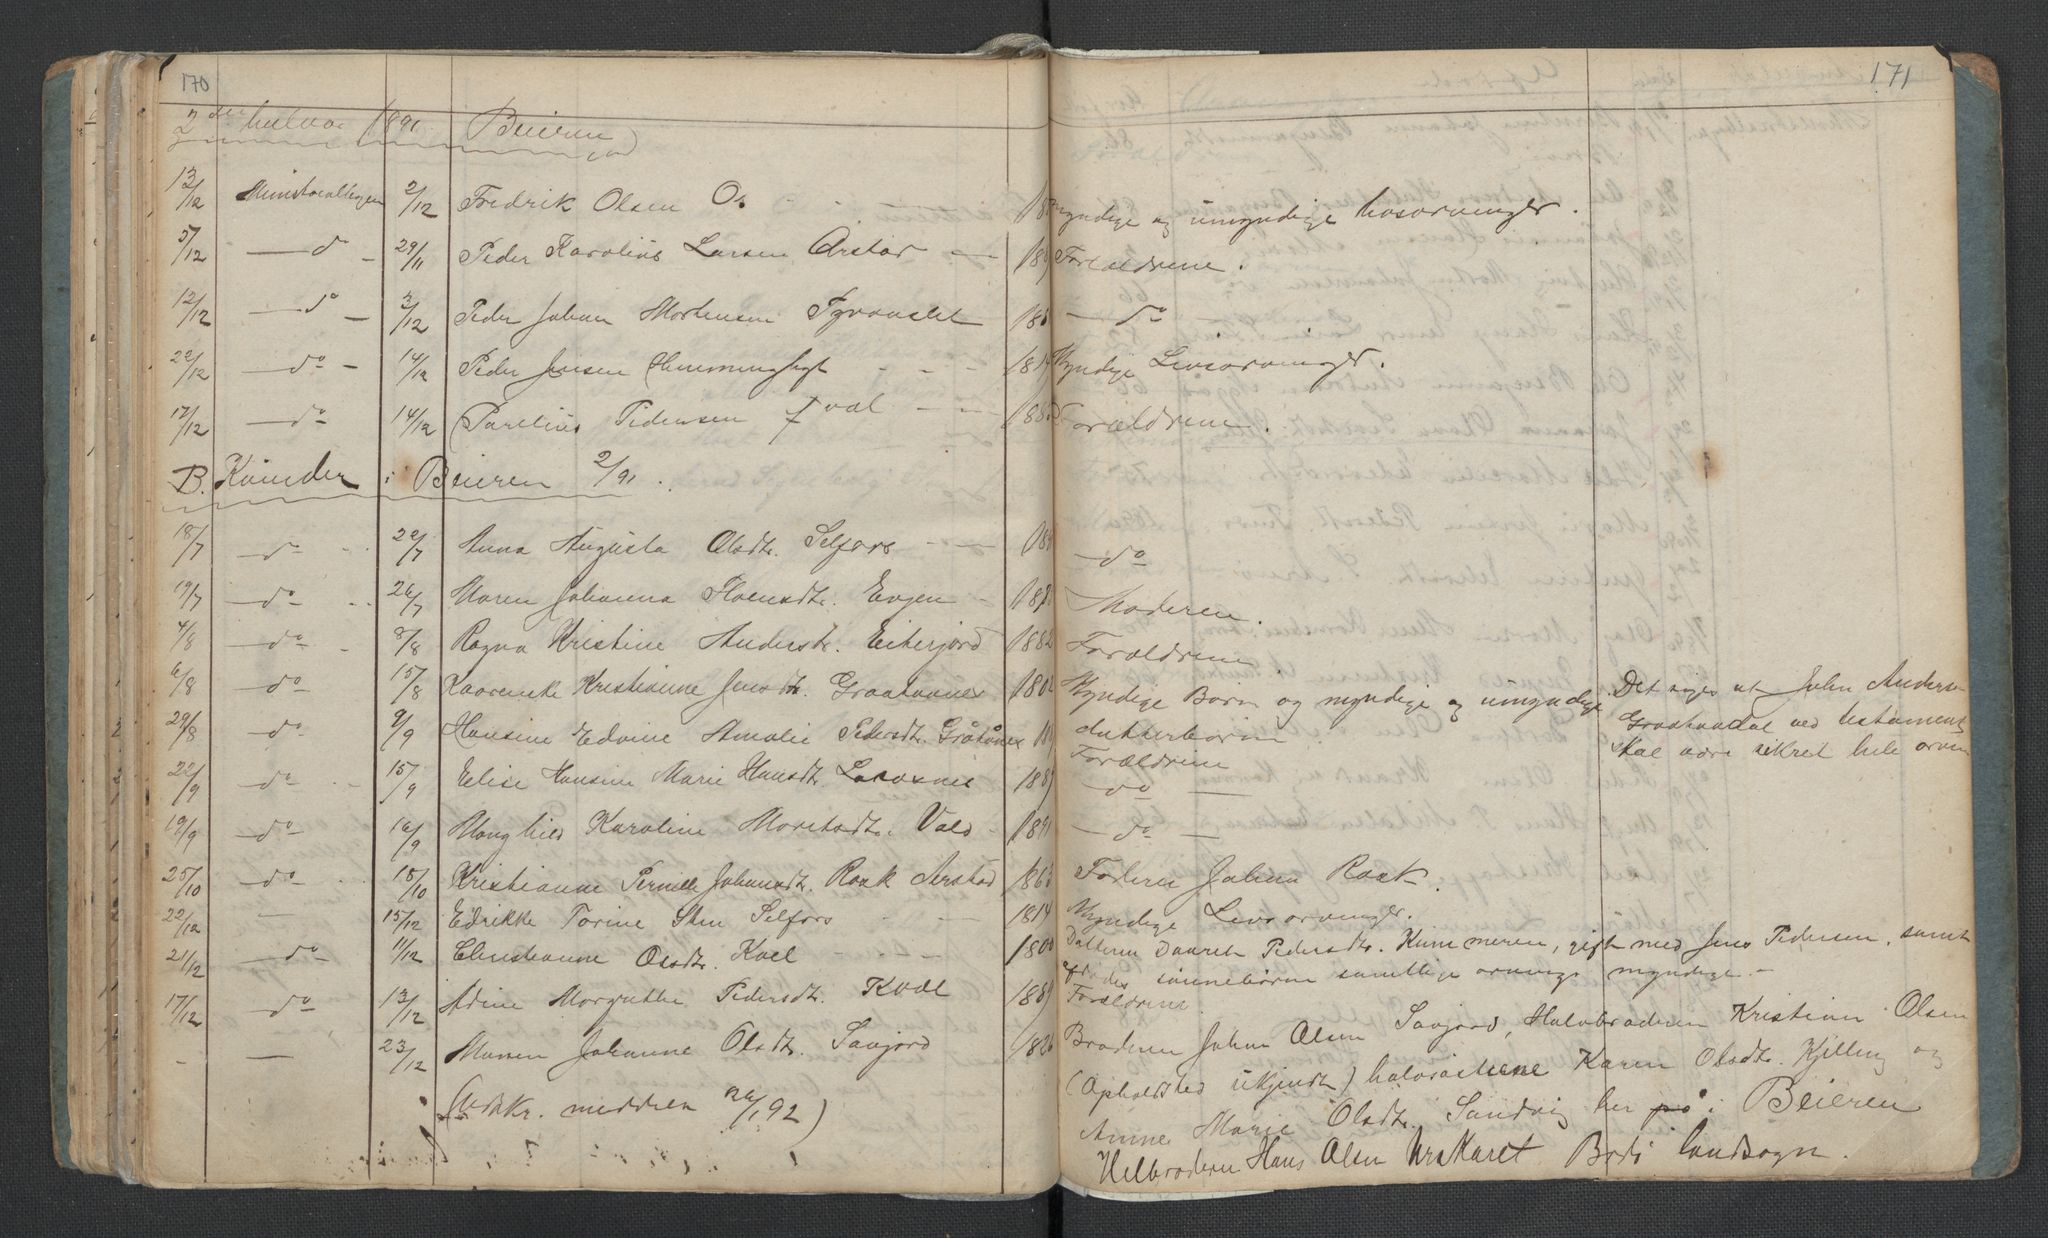 170
2den halvaar 1891. Beieren
13/12 Ministerialbogen 2/12 Fredrik Olsen Os - - 18
5/12 — do - 29/11 Peder Karolius Larsen Arstad — 18
12/12 — do - 3/12 Peder Johan Mortensen 188
22/12 — do - 14/12 Peder Jensen - - - 181
17/12 — do - 14/12 Parelius Pedersen - - 188
B. Kvinder i Beieren 2/91.
18/7 — do - - 22/7 Anna Augusta Olsdtr. Selfors - - 188
19/7 — do - - 26/7 Maren Johanna Evjen - 18
4/8 — do - 8/8 Ragna Kristine Andersdtr. Eiterjord 1882
6/8 — do - 15/8 Kristianne Jensdtr. Graataanes 1802
29/8 do - 9/9 Hansine Edvine Amalie Pedersdtr. Gråtånes 18
22/9 do - 15/9 Elise Hansine Marie Hansdtr. 1889
19/9 — do - 16/9 Karoline Vold - 1891
25/10 — do - 15/10 Kristianne Pernille Johansdtr. Raak Arstad 1863
22/12 — 15/12 Edrikke Torine Selfors - - 1814
21/12 — do - 11/12 Christianne Olsdtr. Kvæl - - - 180
17/12 — do - 13/12 Adine Margrethe Pedersdtr. Kvæl 1889
- — 23/12 Maren Johanne Olsdtr. Savjord 1826
(Indkr. meddelen 26/1 92)
171
Myndige og umyndige livsarvinger.
Forældrene.
— do
Myndige Livsarvinger.
Forældrene.
— do
Moderen.
Forældrene
Myndige Børn og myndige og umyndige
datterbørn.
Det siges at John Anders.
Graataadal ved testament
skal være sikret hele arven
Forældrene
— do —
— do —
Faderen Johan Raak.
Myndige Livsarvinger.
Datteren Pedersdtr. gift med Jens Pedersen, samt
afdødes sønnebørn samtlige myndige. -
Forældrene
Broderen Johan Olsen Savjord, Halvbroderen Kristian Olsen
(Opholdsted ukjendt) halvsøstrene Karen Olsdtr. Kjelling og
Anne Marie Olsdtr. Sandvig her på i Beieren
Helbroderen Hans Olsen Bodø landsogn.